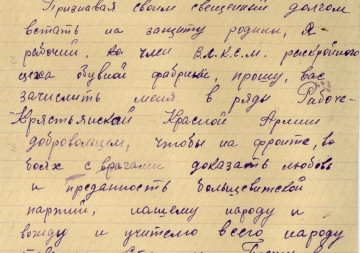 Признавая своим священным долгом
встать на защиту родины, Я-
рабочий, член В.Л.К.С.М. раскройного
цеха обувной фабрики, прошу вас
зачислить меня в ряды Рабоче-
Крестьянской Красной Армии
добровольцем, чтобы на фронте, во
боях с врагами доказать любовь
и преданность большевитской
партии, нашему народу и
вождю и учителю всего народу